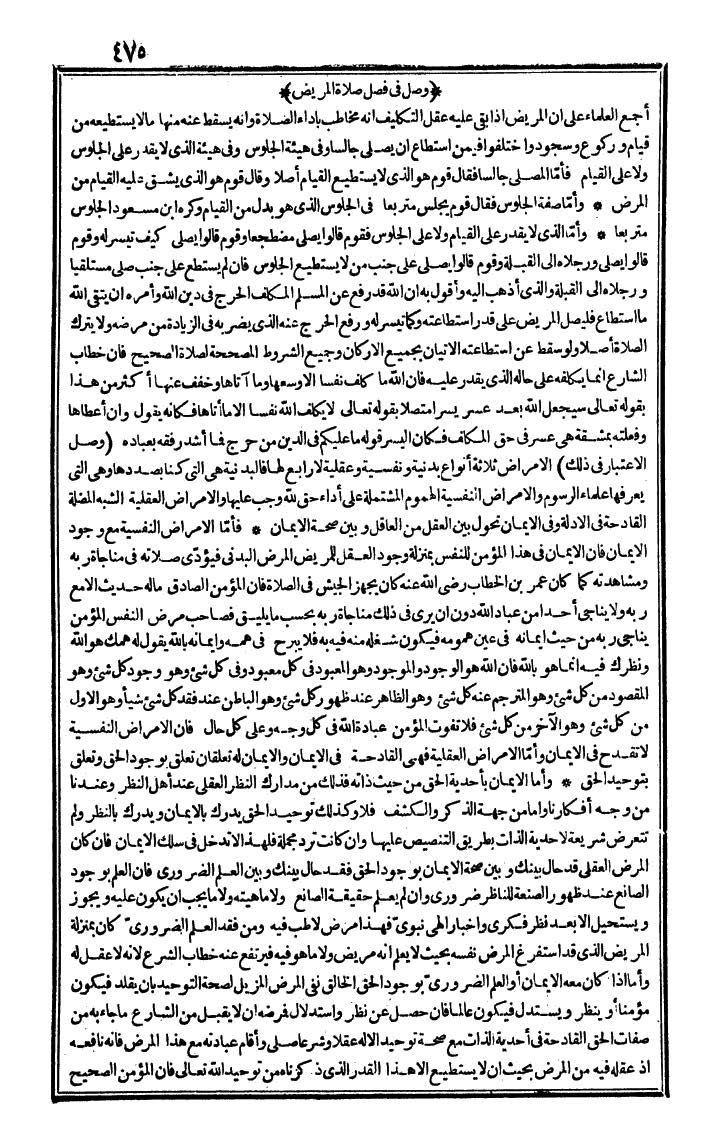 ٤٧٥
﴿وصل فى فصل صلاة المريض﴾
أجمع العلماء على ان المريض اذا بقى عليه عقل التكليف انه مخاطب باداء الصلاة وانه يسقط عنه منها مالا يستطيعه من
قيام وركوع وسجود واختلفوا فيمن استطاع ان يصلى جالسا وفى هيئة الجلوس وفى هيئة الذى لا يقدر على الجلوس
ولا على القيام فأمّا المصلى جالسا فقال قوم هو الذى لا يستطيع القيام أصلا وقال قوم هو الذى يشق عليه القيام من
المرض * وأمّا صفة الجلوس فقال قوم يجلس متربعا فى الجلوس الذى هو بدل من القيام وكره ابن مسعود الجلوس
متربعا * وأمّا الذى لا يقدر على القيام ولا على الجلوس فقوم قالوا يصلى مضطجعا وقوم قالوا يصلى كيف تيسر له وقوم
قالوا يصلى ورجلاه الى القبلة وقوم قالوا يصلى على جنب من لا يستطيع الجلوس فان لم يستطع على جنب صلى مستلقيا
ورجلاه الى القبلة والذى أذهب اليه وأقول به ان الله قد رفع عن المسلم المكلف الحرج فى دين الله وأمره ان يتقى الله
ما استطاع فليصل المريض على قدر استطاعته وكما تيسر له ورفع الحرج عنه الذى يضر به فى الزيادة من مرضه ولا يترك
الصلاة أصلا ولو سقط عن استطاعته الاتيان بجميع الاركان وجميع الشروط المصححة لصلاة الصحيح فان خطاب
الشارع انما يكلفه على حاله الذى يقدر عليه فان الله ما كلف نفسا الا وسعها وما آتاها وخفف عنها أكثر من هذا
بقوله تعالى سيجعل الله بعد عسر يسرا متصلا بقوله تعالى لا يكلف الله نفسا الا ما أتاها فكانه يقول وان أعطاها
وفعلته بمشقة هى عسر فى حق المكلف فكان اليسر قوله ما عليكم فى الدين من حرج فما أشد رفقه بعباده (وصل
الاعتبار فى ذلك) الامراض ثلاثة أنواع بدنية ونفسية وعقلية لا رابع لها فالبدنية هى التى كنا بصددها وهى التى
يعرفها علماء الرسوم والامراض النفسية الهموم المشتملة على أداء حق لله وجب عليها والامراض العقلية الشبه المضلة
القادحة فى الادلة وفى الايمان تحول بين العقل من العاقل وبين صحة الايمان * فأمّا الامراض النفسية مع وجود
الايمان فان الايمان فى هذا المؤمن للنفس بمنزلة وجود العقل للمريض المرض البدنى فيؤدّى صلاته فى مناجاة ربه
ومشاهدته كما كان عمر بن الخطاب رضى الله عنه كان يجهز الجيش فى الصلاة فان المؤمن الصادق ماله حديث الا مع
ربه ولا يناجى أحدا من عباد الله دون ان يرى فى ذلك مناجاة ربه بحسب ما يليق فصاحب مرض النفس المؤمن
يناجى ربه من حيث ايمانه فى عين همومه فيكون شغله منه فيه به فلا يبرح فى همه وايمانه بالله يقول له همك هو الله
ونظرك فيه انما هو بالله فان الله هو الوجود والموجود وهو المعبود فى كل معبود وفى كل شئ وهو وجود كل شئ وهو
المقصود من كل شئ وهو المترجم عنه كل شئ وهو الظاهر عند ظهور كل شئ وهو الباطن عند فقد كل شئ شيأ وهو الاول
من كل شئ وهو الآخر من كل شئ فلا تفوت المؤمن عبادة الله فى كل وجه وعلى كل حال فان الامراض النفسية
لا تقدح فى الايمان وأمّا الامراض العقلية فهى القادحة فى الايمان والايمان له تعلقان تعلق بوجود الحق وتعلق
بتوحيد الحق * وأما الايمان بأحدية الحق من حيث ذاته فذلك من مدارك النظر العقلى عند أهل النظر وعندنا
من وجه أفكارنا واما من جهة الذكر والكشف فلا وكذلك توحيد الحق يدرك بالايمان ويدرك بالنظر ولم
تتعرض شريعة لاحدية الذات بطريق التنصيص عليها وان كانت ترد مجملة فلهذا لا تدخل فى سلك الايمان فان كان
المرض العقلى قد حال بينك وبين صحة الايمان بوجود الحق فقد حال بينك وبين العلم الضرورى فان العلم بوجود
الصانع عند ظهور الصنعة للناظر ضرورى وان لم يعلم حقيقة الصانع ولا ماهيته ولا ما يجب ان يكون عليه ويجوز
ويستحيل الا بعد نظر فكرى واخبار الهى نبوىّ فهذا مرض لا طب فيه ومن فقد العلم الضرورىّ كان بمنزلة
المريض الذى قد استفرغ المرض نفسه بحيث لا يعلم انه مريض ولا ما هو فيه فيرتفع عنه خطاب الشرع لانه لا عقل له
وأما اذا كان معه الايمان أو العلم الضرورىّ بوجود الحق الخالق نفى المرض المزيل لصحة التوحيد بان يقلد فيكون
مؤمنا أو ينظر ويستدل فيكون عالما فان حصل عن نظر واستدلال فرضه ان لا يقبل من الشارع ما جاء به من
صفات الحق القادحة فى أحدية الذات مع صحة توحيد الاله عقلا وشرعا صلى وأقام عبادته مع هذا المرض فانه نافعه
اذ عقله فيه من المرض بحيث ان لا يستطيع الا هذا القدر الذى ذكرناه من توحيد الله تعالى فان المؤمن الصحيح